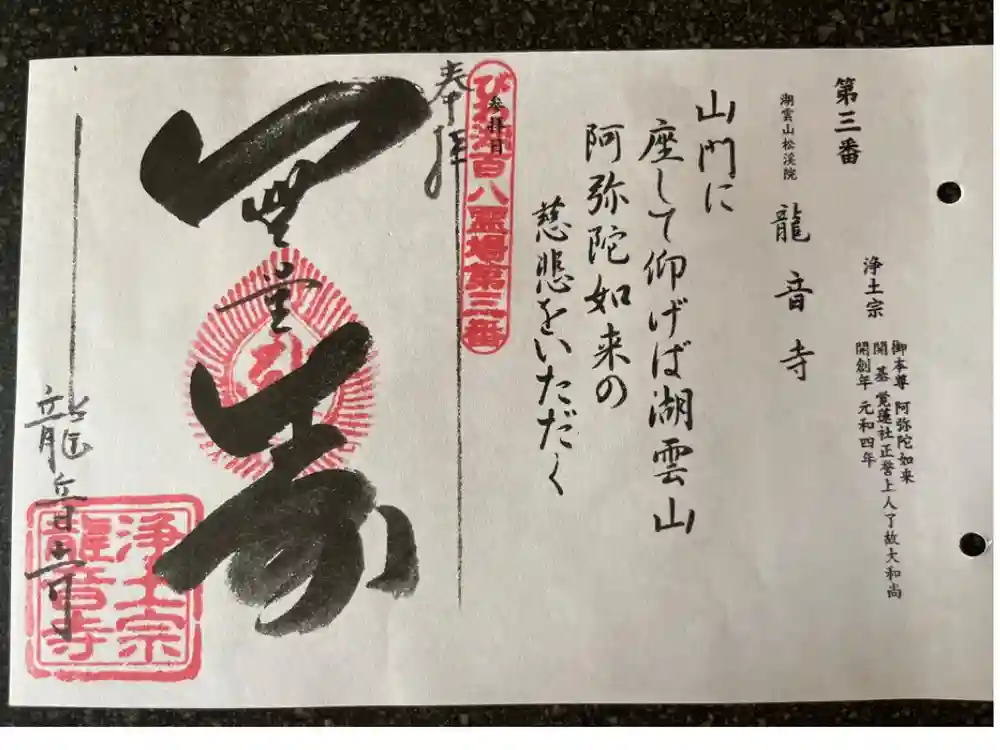 第三番
浄土宗
御本尊 阿弥陀如来
開基 覚蓮社正誉上人了故大和尚
開創年 元和四年
湖雲山松渓院
龍音寺
山門に
座して仰げば湖雲山
阿弥陀如来の
慈悲をいただく
びわ湖百八霊場第三番
参拝日
奉拝
無量寿
龍音寺
浄土宗
龍音寺